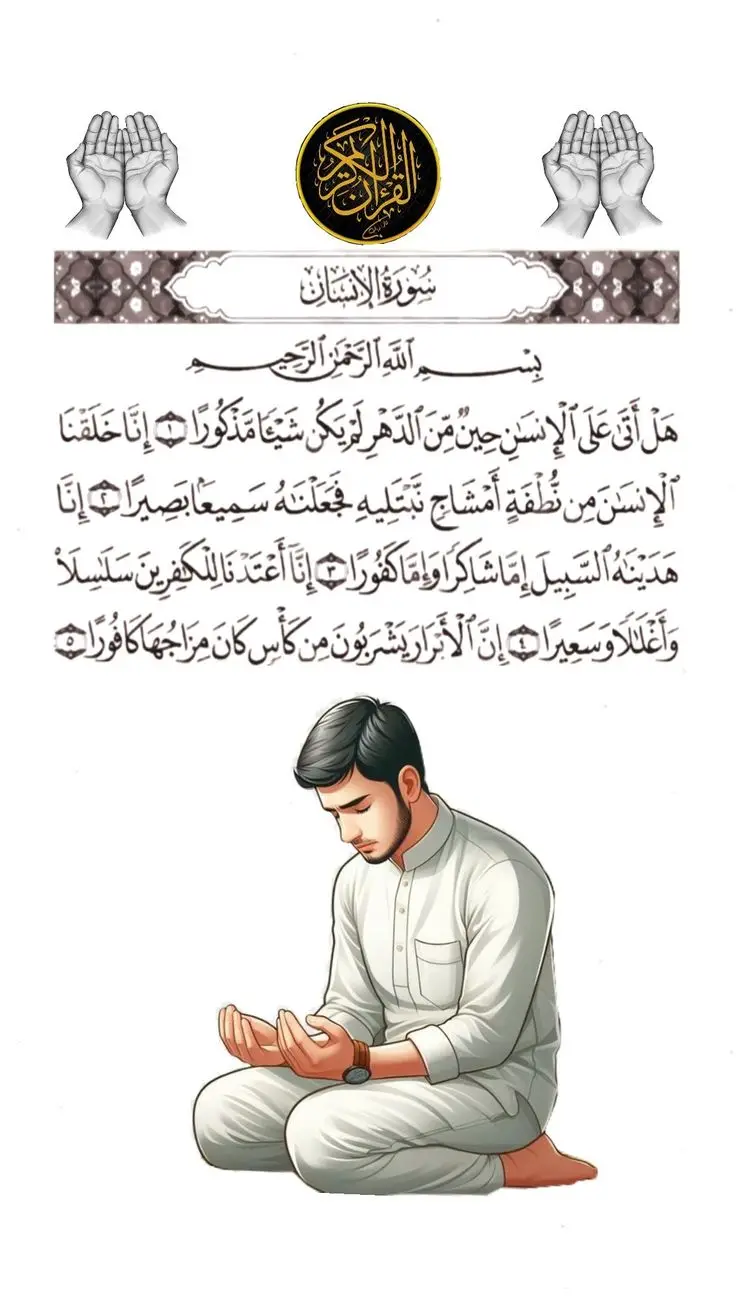 القرآن الكريم
سُورَةُ الإِنسَانِ
بِسْمِ ٱللَّهِ ٱلرَّحْمَٰنِ ٱلرَّحِيمِ
هَلْ أَتَىٰ عَلَى ٱلْإِنسَٰنِ حِينٌ مِّنَ ٱلدَّهْرِ لَمْ يَكُن شَيْـًٔا مَّذْكُورًا ١ إِنَّا خَلَقْنَا
ٱلْإِنسَٰنَ مِن نُّطْفَةٍ أَمْشَاجٍ نَّبْتَلِيهِ فَجَعَلْنَٰهُ سَمِيعًۢا بَصِيرًا ٢ إِنَّا
هَدَيْنَٰهُ ٱلسَّبِيلَ إِمَّا شَاكِرًا وَإِمَّا كَفُورًا ٣ إِنَّآ أَعْتَدْنَا لِلْكَٰفِرِينَ سَلَٰسِلَا۟
وَأَغْلَٰلًا وَسَعِيرًا ٤ إِنَّ ٱلْأَبْرَارَ يَشْرَبُونَ مِن كَأْسٍ كَانَ مِزَاجُهَا كَافُورًا ٥